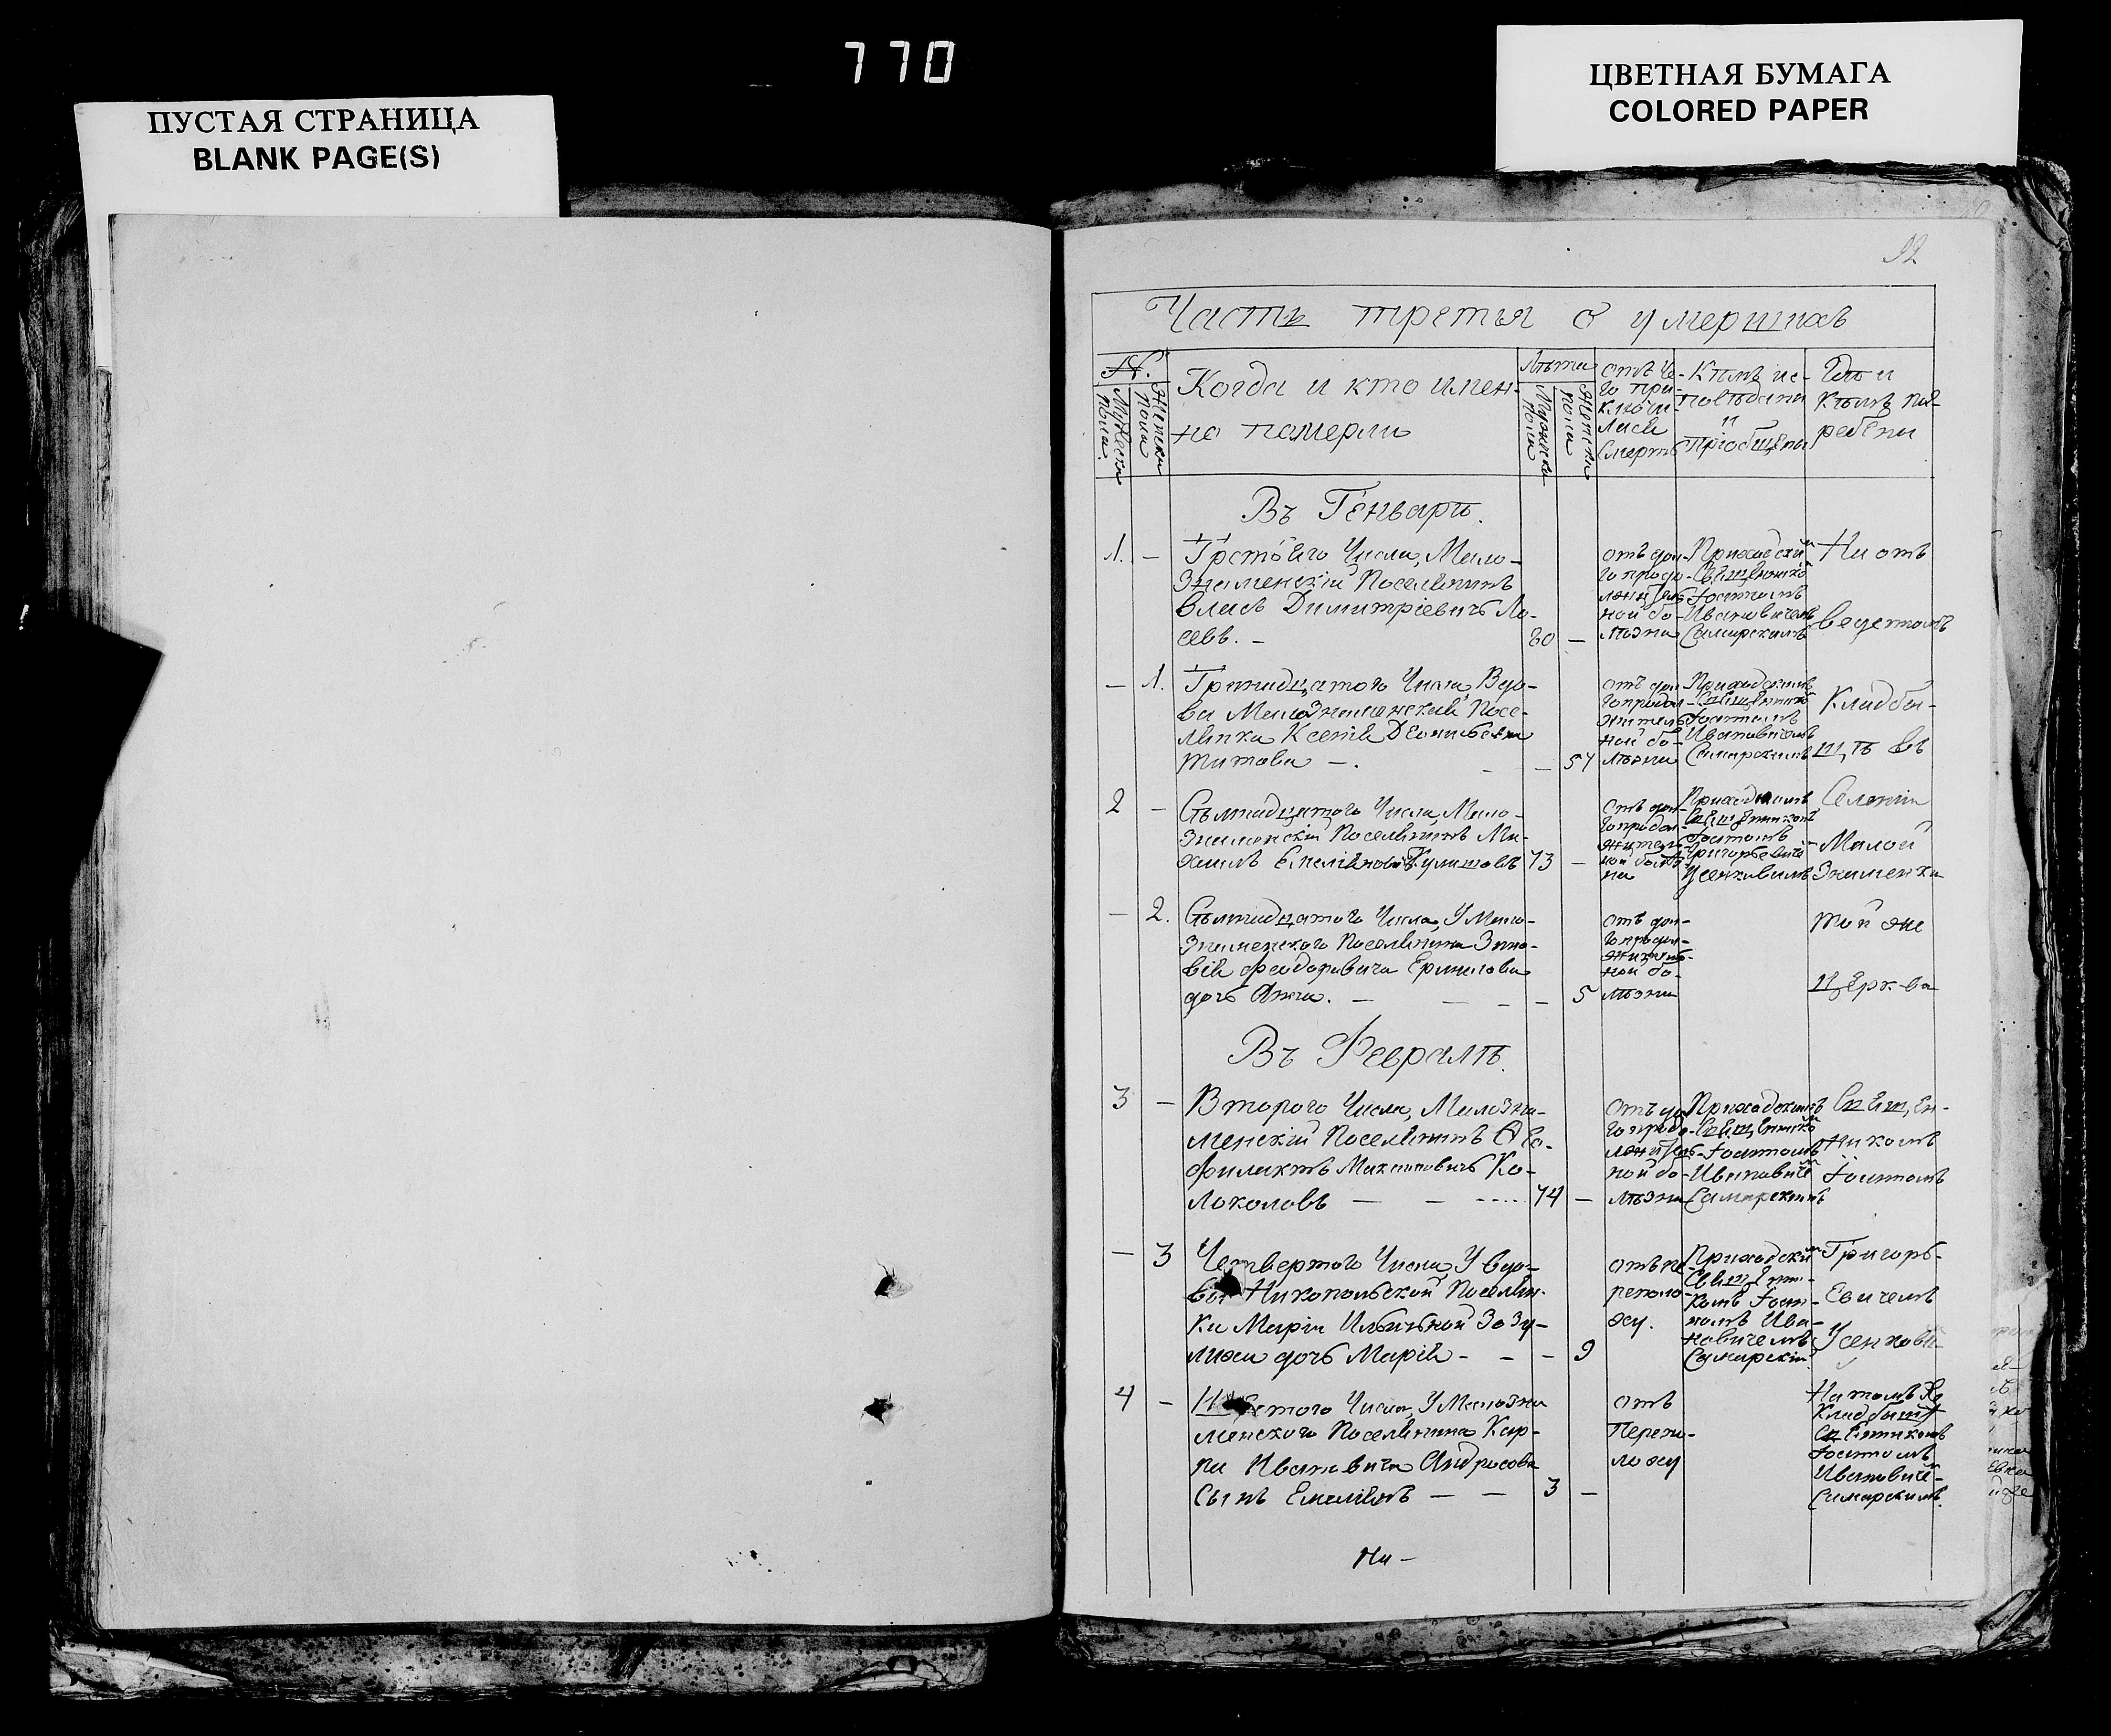 770
ПУСТАЯ СТРАНИЦА
BLANK PAGE(S)
ЦВЕТНАЯ БУМАГА
COLORED PAPER
92
Часть третья о умершихъ
№.
Мужеска пола.
Женска пола
Когда и кто имен-
но померли
Лѣта
Мужеска пола
Женска пола
Отъ че-
го при-
ключи-
лась
смерть
Кѣмъ ис-
повѣданы
и
пріобщены
Гдѣ и
кѣмъ пог-
ребены
Въ Генварѣ.
1. —
Третьяго Числа, Мало-
Знаменскій Поселянинъ
Власъ Димитріевичъ Ло-
севъ. — 80 —
отъ дол-
гопродо-
житель-
ной бо-
лѣзни
Приходским
Священнико
Іоанномъ
Ивановичемъ
Самарскимъ
На отъ
веденомъ
— 1.
Тринадцатого Числа, Вдо-
ва Малознаменская Посе-
лянка Ксенія Деонисова
Титова —. — — 57
отъ дол-
гопродол-
житель
ной бо-
лѣзни
Приходскимъ
Священнико
Іоанномъ
Ивановичемъ
Самарскимъ
Кладби-
щѣ въ
2 —
Сѣмнадцатого Числа, Мало-
Знаменскій Поселянинъ Ми-
хаилъ Емеліяновъ Кулишовъ 73 —
отъ дол-
гопродол-
житель-
ной болѣз
ни
Приходскимъ
Священникомъ
Іоанномъ
Григорьевиче
Усенковымъ
Селеніи
Малой
Знаменки
— 2.
Сѣмнадцатого Числа, У Мало-
Знаменского Поселянина Зино-
вія Феодоровича Ермилова
дочь Анна. — — — 5
отъ дол-
гопродол-
житель-
ной бо-
лѣзни
той же
Церкви
Въ Февралѣ.
3 —
Второго Числа, Малозна-
менскій Поселянинъ Ѳео-
филактъ Максимовичъ Ко-
локоловъ — — 74 —
Отъ до
гопродо-
житель-
ной бо-
лѣзни
Приходскимъ
Священнико
Іоанномъ
Ивановиче
Самарскимъ
Священ-
никомъ
Іоанномъ
— 3
Четвертого Числа, У вдо-
вы Никопольской Поселян-
ки Маріи Ильиной Зозу-
лихи дочь Марія — — — 9
отъ пе-
реполо-
ху.
Приходски
Священни-
комъ Іоан-
номъ Ива-
новичемъ
Самарскім
Григорь-
евичемъ
Усенковы
4 —
Шестого Числа, У Малозна
менского Поселянина Кар-
па Ивановича Андросова
Сынъ Емеліянъ — — 3 —
отъ
Перепо-
лоху
На томъ же
Кладбищѣ
Священикомъ
Іоанномъ
Ивановиче-
Самарскимъ.
На-